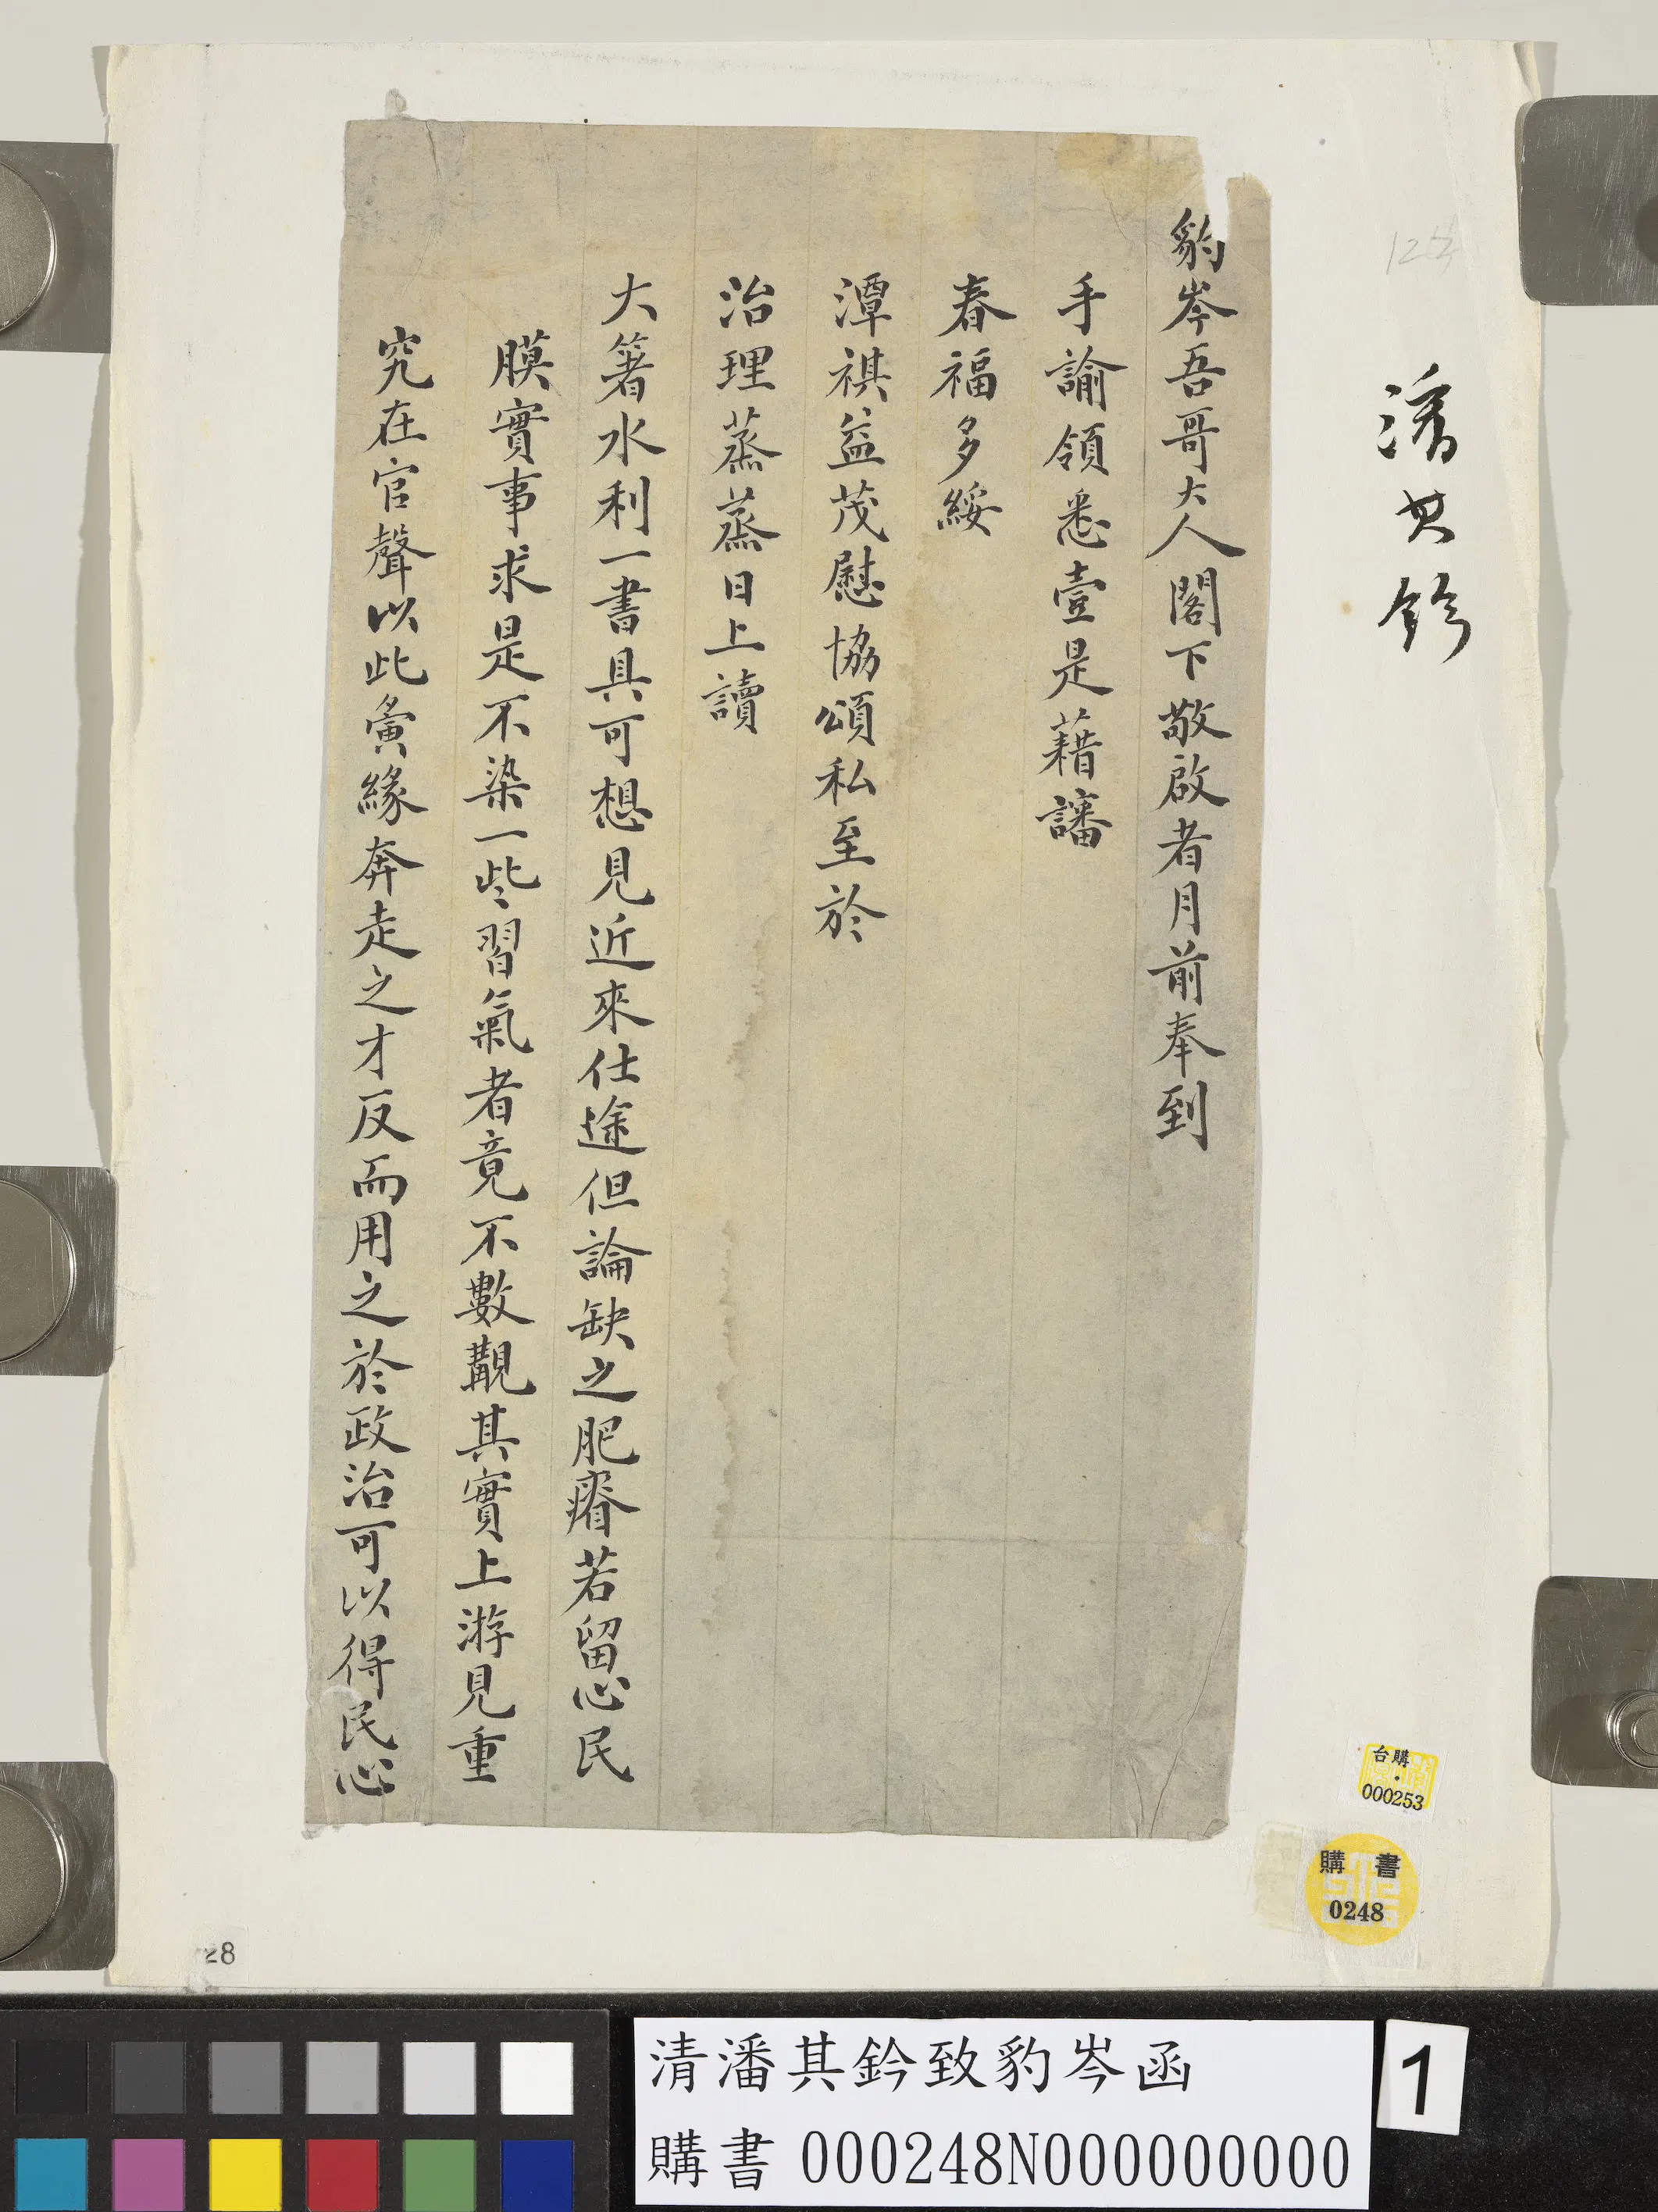 豹岑吾哥大人閣下敬啟者月前奉到
手諭領悉壹是藉讅
春福多綏
潭祺益茂慰協頌私至於
治理蒸蒸日上讀
大箸水利一書具可想見近來仕途但論缺之肥瘠若留心民
膜實事求是不染一些習氣者竟不數覯其實上游見重
究在官聲以此夤緣奔走之才反而用之於政治可以得民心
潘其鈐
台購
000253
購書
0248
28
清潘其鈐致豹岑函
購書 000248N000000000
1